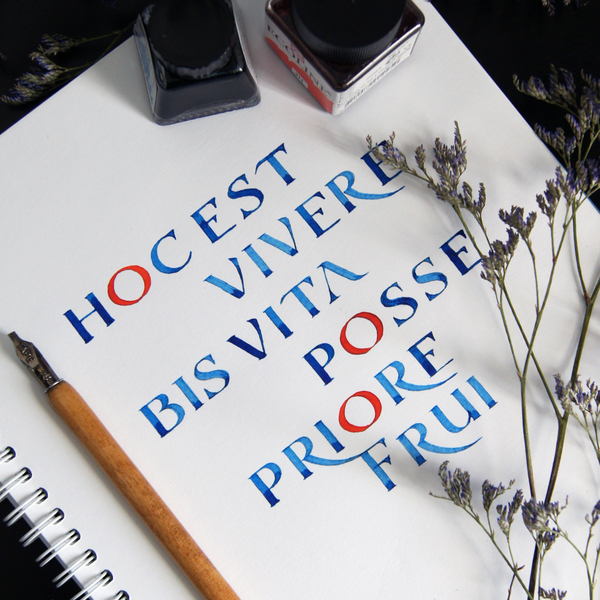 ECOLINE
HOC EST
VIVERE
BIS VITA
POSSE
PRIORE
FRUI